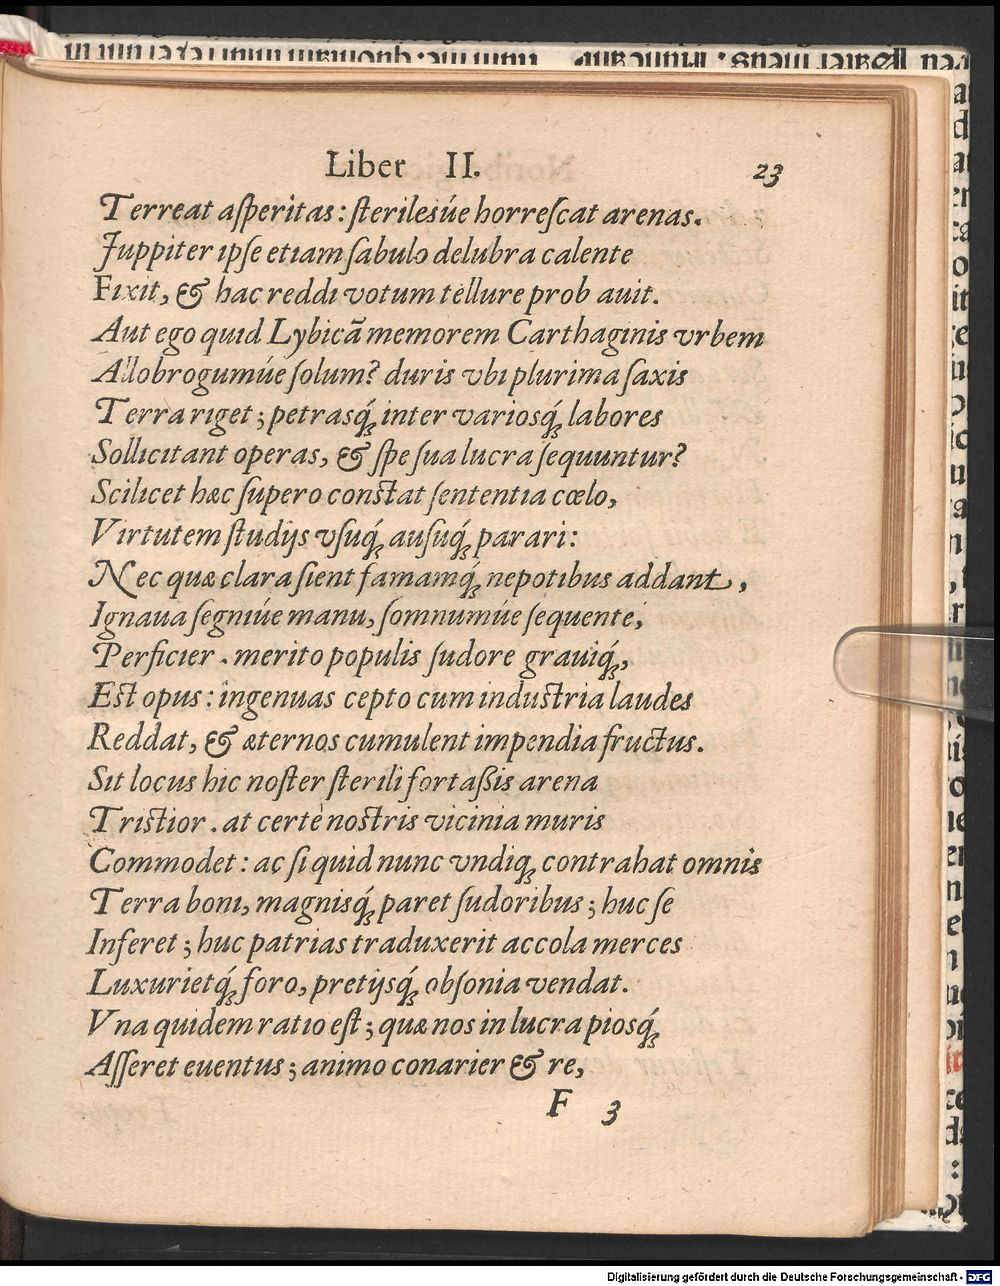 Liber II. 23
Terreat aſperitas: ſterilesúe horreſcat arenas.
Juppiter ipſe etiam ſabulo delubra calente
Fixit, & hac reddi votum tellure prob auit.
Aut ego quid Lybicā memorem Carthaginis vrbem
Allobrogumúe ſolum? duris vbi plurima ſaxis
Terra riget; petrasq́ꝫ inter variosq́ꝫ labores
Sollicitant operas, & ſpe ſua lucra ſequuntur?
Scilicet hæc ſupero conſtat ſententia cœlo,
Virtutem ſtudijs vſuq́ꝫ auſuq́ꝫ parari:
Nec quæ clara ſient famamq́ꝫ nepotibus addant,
Ignaua ſegniúe manu, ſomnumúe ſequente,
Perficier. merito populis ſudore grauiq́ꝫ,
Eſt opus: ingenuas cepto cum induſtria laudes
Reddat, & æternos cumulent impendia fructus.
Sit locus hic noſter ſterili fortaßis arena
Triſtior. at certè noſtris vicinia muris
Commodet: ac ſi quid nunc vndiqꝫ contrahat omnis
Terra boni, magnisq́ꝫ paret ſudoribus; huc ſe
Inferet; huc patrias traduxerit accola merces
Luxurietq́ꝫ foro, pretijsq́ꝫ obſonia vendat.
Vna quidem ratio eſt; quæ nos in lucra piosq́ꝫ
Aſſeret euentus; animo conarier & re,
F 3
Digitalisierung gefördert durch die Deutsche Forschungsgemeinschaft - DFG